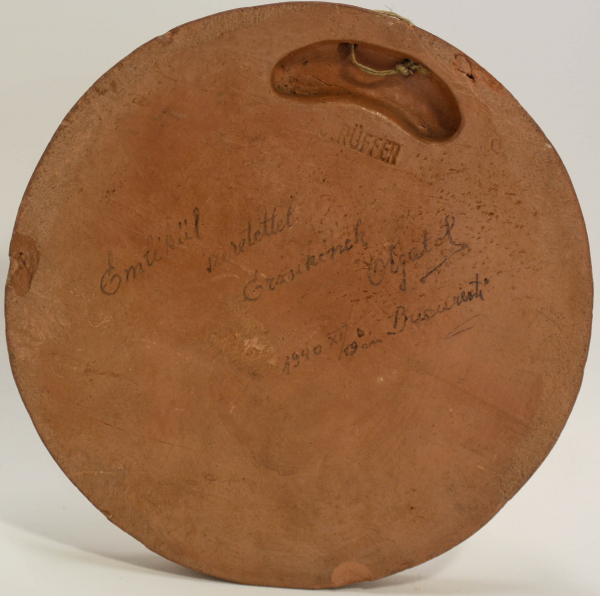 RÜFFER
Emlékül
szeretettel
Erzsikének
Olgától
1940 XII
Bucuresti